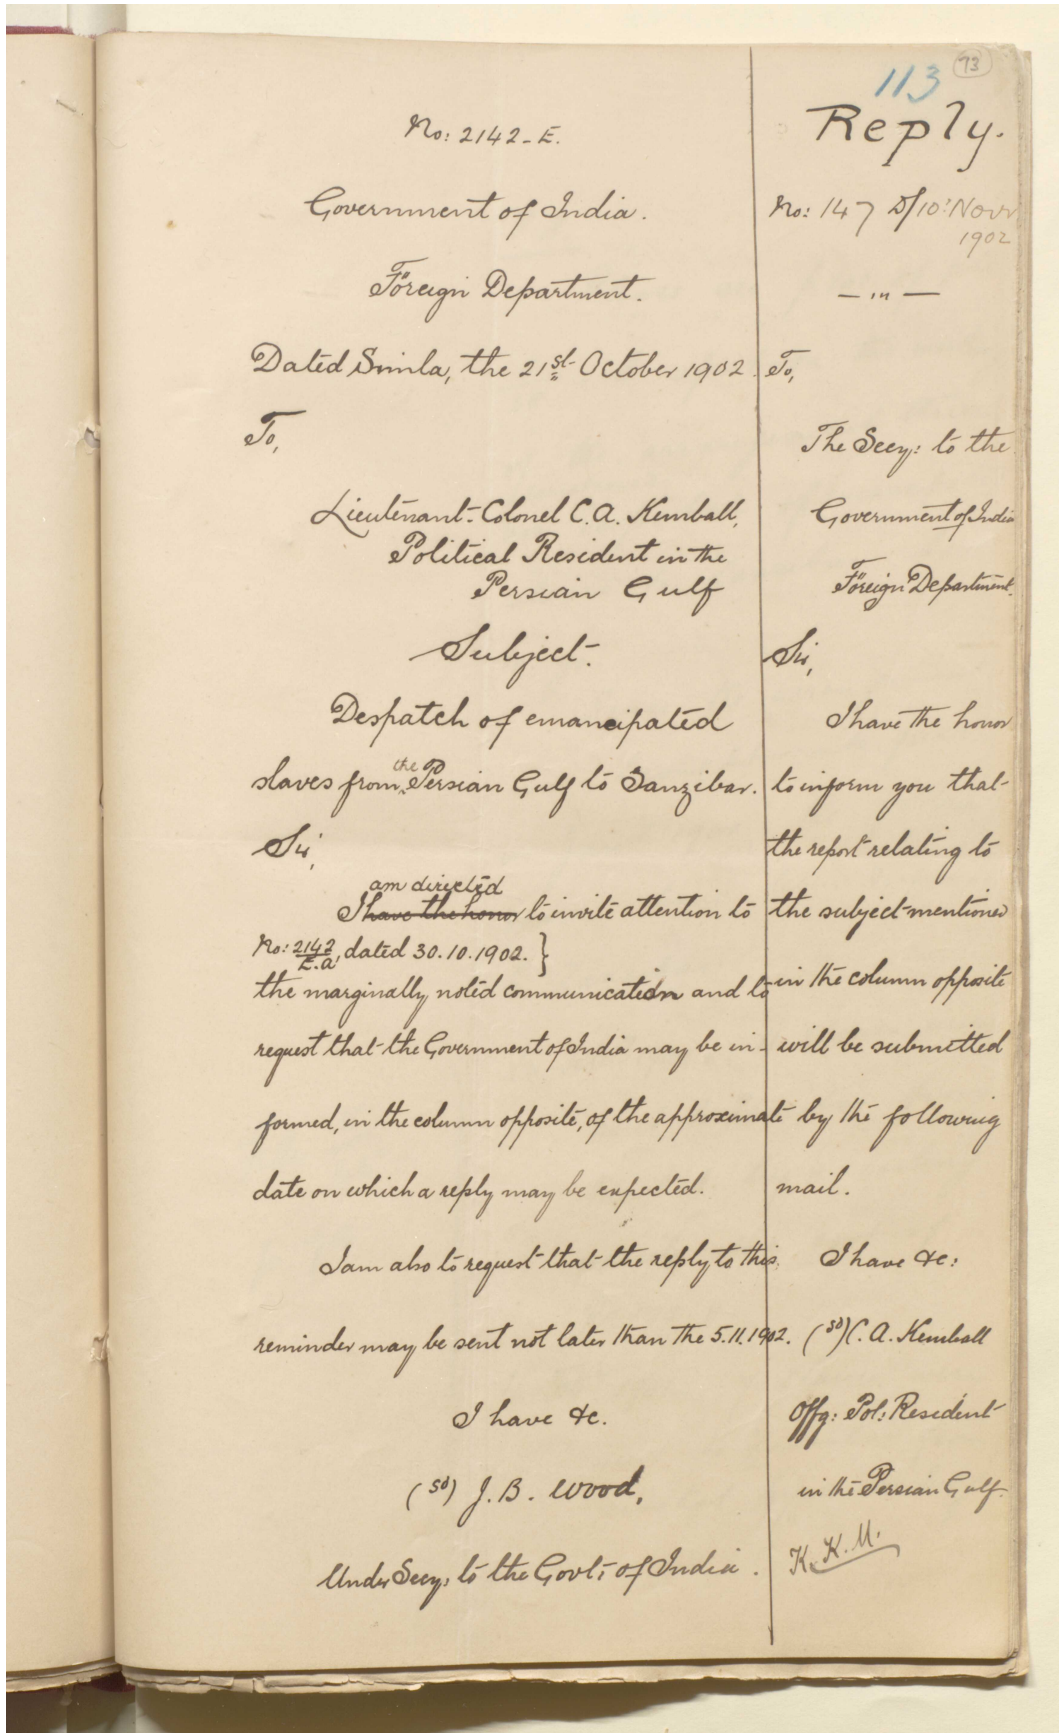 113
73
No: 2142-E.
Government of India.
Foreign Department.
Dated Simla, the 21st October 1902.
To,
Lieutenant-Colonel C.A. Kemball,
Political Resident in the
Persian Gulf
Subject.
Despatch of emancipated
slaves from the Persian Gulf to Zanzibar.
Sir,
am directed
I have the honor to invite attention to
No: 2142/E.a, dated 30.10.1902. }
the marginally noted communication and to
request that the Government of India may be in-
formed, in the column opposite, of the approximate
date on which a reply may be expected.
I am also to request that the reply to this
reminder may be sent not later than the 5.11.1902.
I have &c.
(sd) J.B. Wood,
Under Secy: to the Govt: of India.
Reply.
No: 147 D/10: Novr
1902
— " —
To,
The Secy: to the
Government of India
Foreign Department.
Sir,
I have the honor
to inform you that
the report relating to
the subject mentioned
in the column opposite
will be submitted
by the following
mail.
I have &c:
(sd) C.A. Kemball
Offg: Pol: Resident
in the Persian Gulf.
K.K.M.